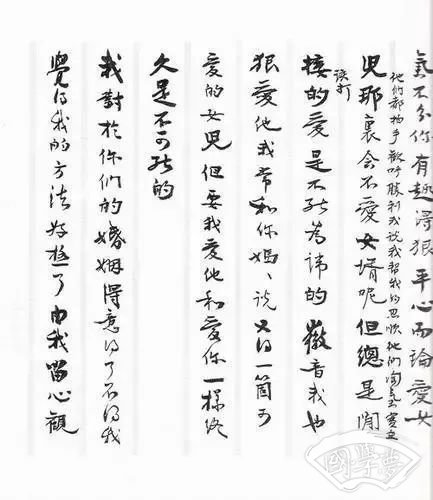 氣不分你有趣得狠平心而論愛女
他們都拍手歡呼勝利我說我幫我的思順他們淘氣實在
該打
兒那裏會不愛女壻呢但總是間
接的愛是不能為諱的徽音我也
狠愛他我常和你媽、說又得一箇可
愛的女兒但要我愛他和愛你一樣終
久是不可能的
我對於你們的婚姻得意得了不得我
覺得我的方法好極了由我留心觀
國學